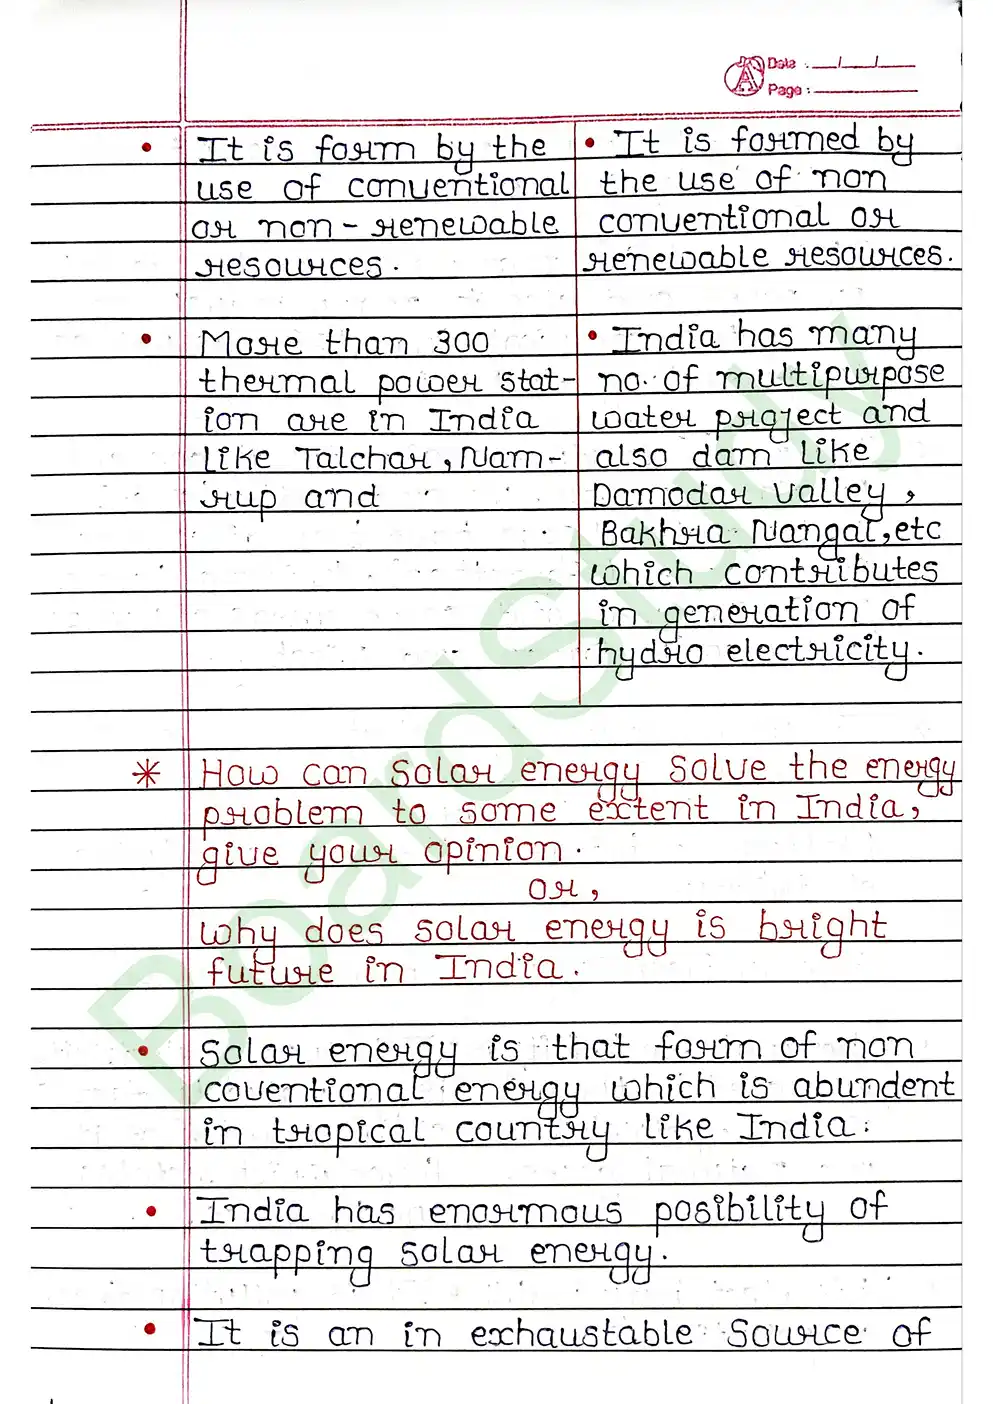 Date : __/__/__
Page :
• It is form by the
use of conventional
or non-renewable
resources.
• More than 300
thermal power stat-
ion are in India
like Talchar, Nam-
rup and
• It is formed by
the use of non
conventional or
renewable resources.
• India has many
no. of multipurpose
water project and
also dam like
Damodar valley,
Bakhra Nangal, etc
which contributes
in generation of
hydro electricity.
* How can solar energy solve the energy
problem to some extent in India,
give your opinion.
or,
why does solar energy is bright
future in India.
• Solar energy is that form of non
coventional energy which is abundent
in tropical country like India.
• India has enormous posibility of
trapping solar energy.
• It is an in exhaustable source of
BoardStudy